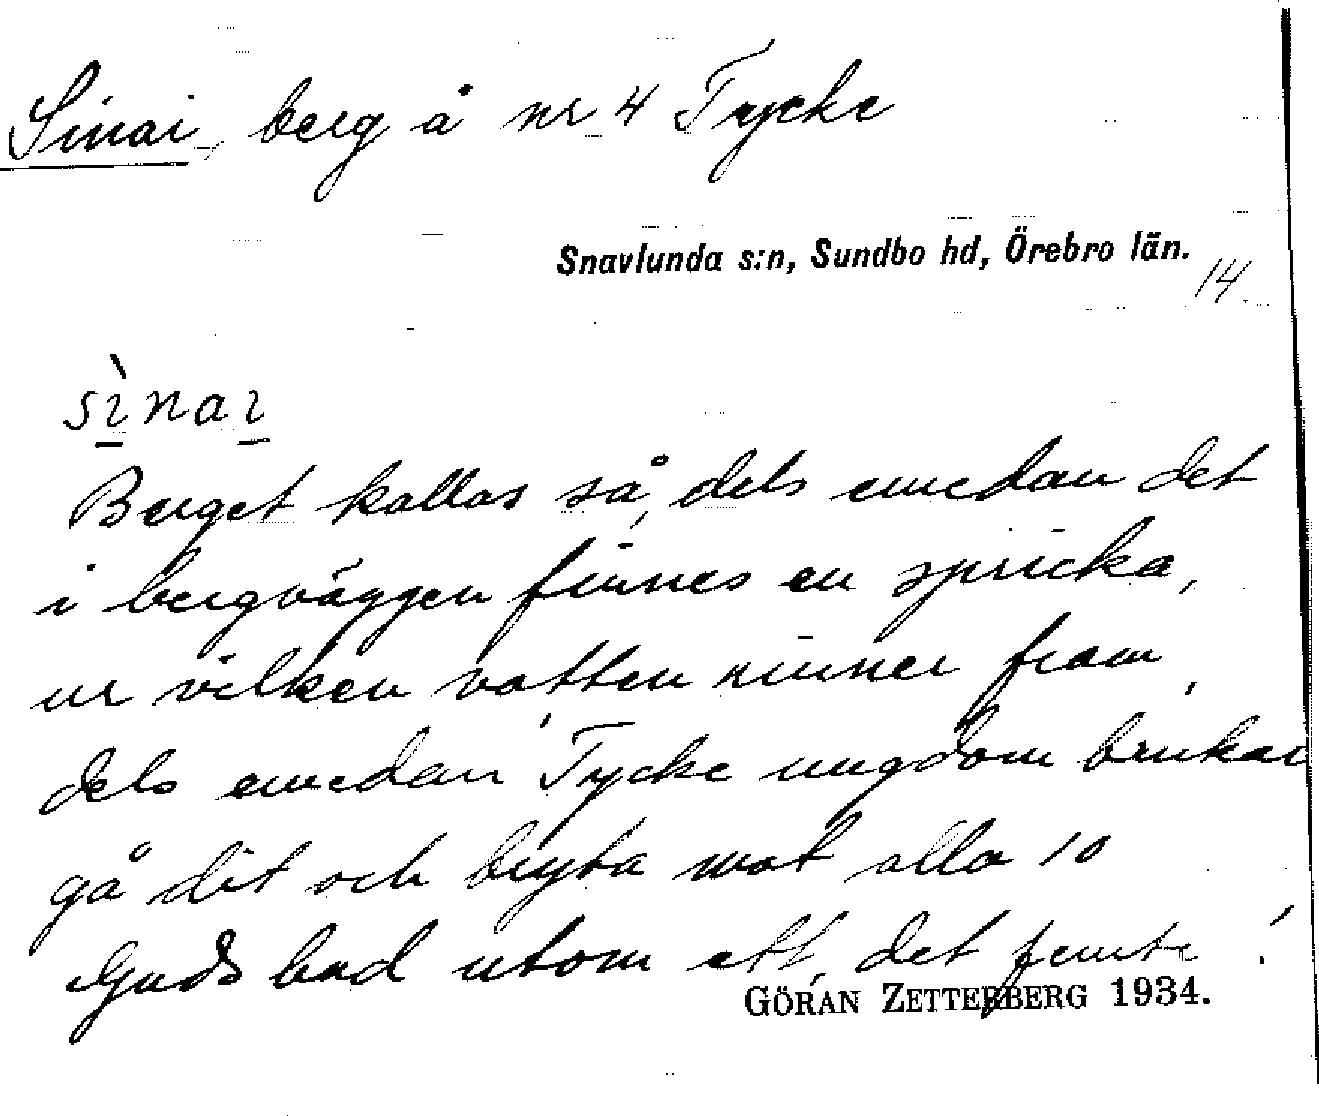 Sinai, berg å nr 4 Tycke
Snavlunda s:n, Sundbo hd, Örebro län.
14
sìnaı
Berget kallas så, dels emedan det
i bergväggen finnes en spricka,
ur vilken vatten rinner fram,
dels emedan Tycke ungdom brukar
gå dit och bryta mot alla 10
Guds bud utom ett, det femte!
GÖRAN ZETTERBERG 1934.